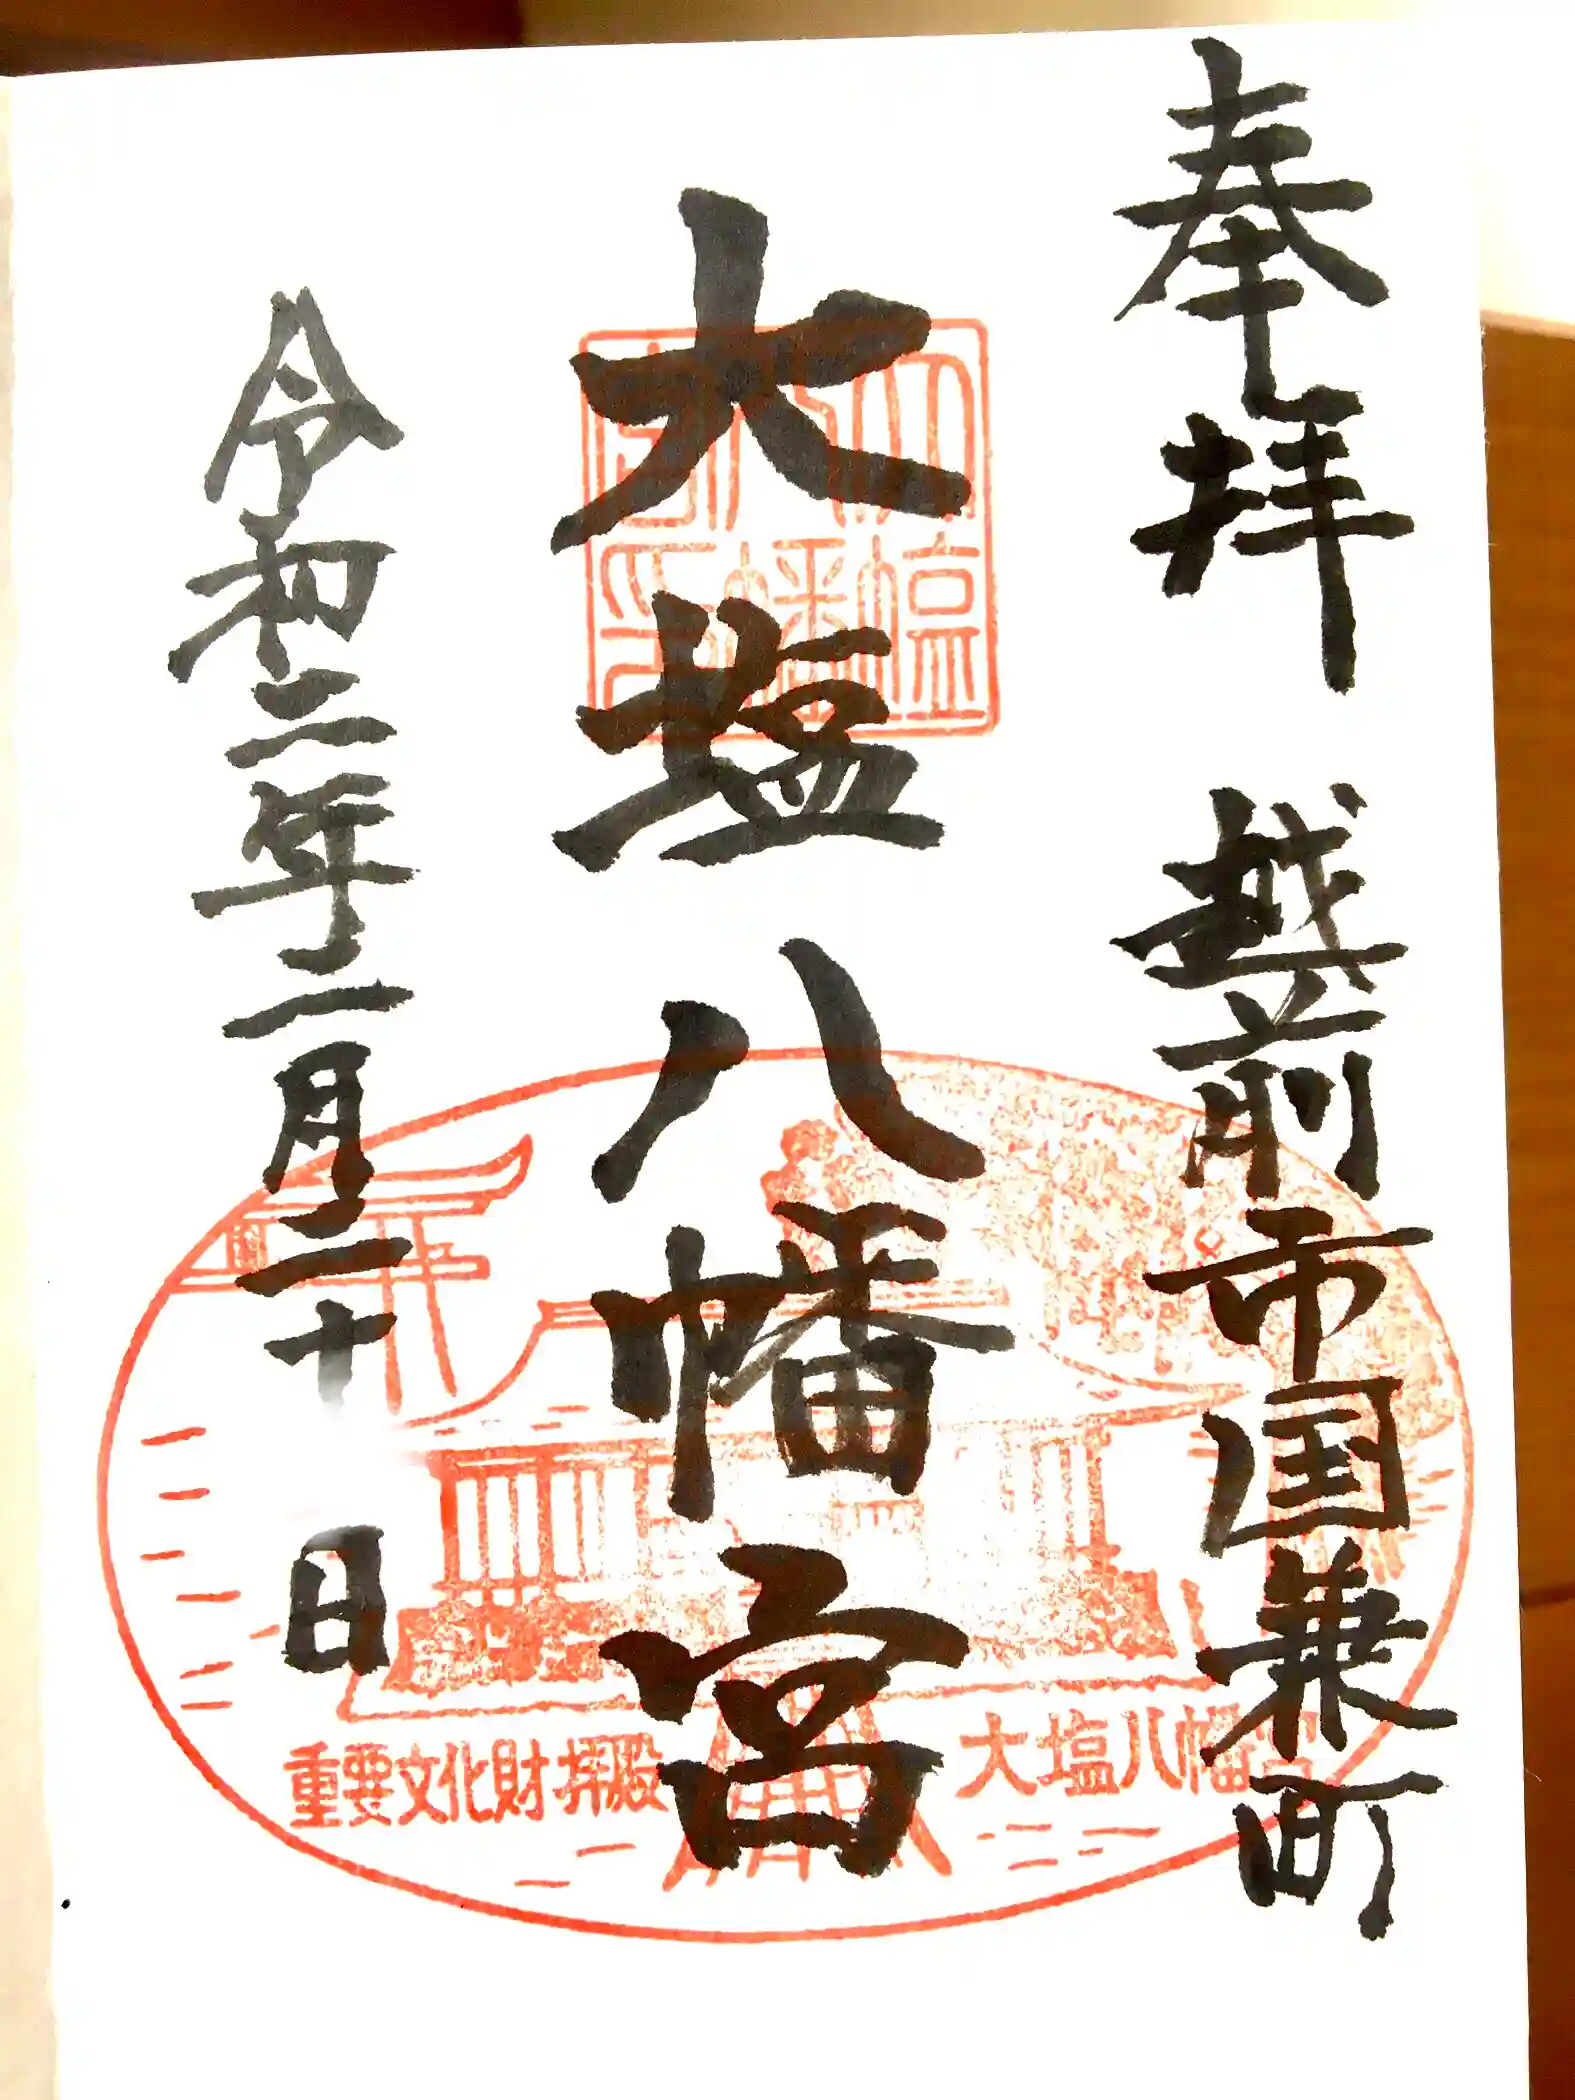 奉拝　越前市国兼町
大塩八幡宮
令和二年二月二十 日
大塩
八幡
宮印
重要文化財拝殿
大塩八幡宮